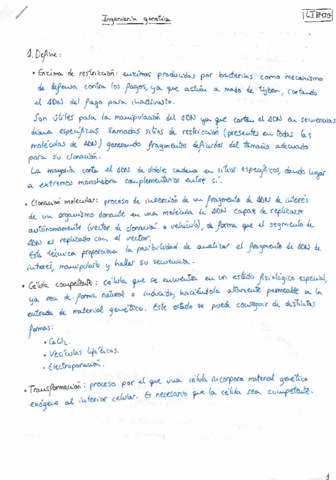 Ingeniería genética
1. Define:
• Enzima de restricción: enzimas producidas por bacterias como mecanismo
de defensa contra los fagos, ya que actúan a modo de tijeras, cortando
el ADN del fago para inactivarlo.
Son útiles para la manipulación del ADN ya que cortan el ADN en secuencias
diana específicas llamadas sitios de restricción (presentes en todas las
moléculas de ADN) generando fragmentos definidos del tamaño adecuado
para su clonación.
La mayoría corta el ADN de doble cadena en sitios específicos, dando lugar
a extremos monohebra complementarios entre sí.
• Clonación molecular: proceso de inserción de un fragmento de ADN de interés
de un organismo donante en una molécula de ADN capaz de replicarse
autónomamente (vector de clonación o vehículo), de forma que el segmento de
ADN es replicado con el vector.
Esta técnica proporciona la posibilidad de analizar el fragmento de ADN de
interés, manipularlo y hallar su secuencia.
• Célula competente: célula que se encuentra en un estado fisiológico especial,
ya sea de forma natural o inducida, haciéndola altamente permeable a la
entrada de material genético. Este estado se puede conseguir de distintas
formas:
• CaCl₂.
• Vesículas lipídicas.
• Electroporación.
• Transformación: proceso por el que una célula incorpora material genético
exógeno al interior celular. Es necesario que la célula sea competente.
1